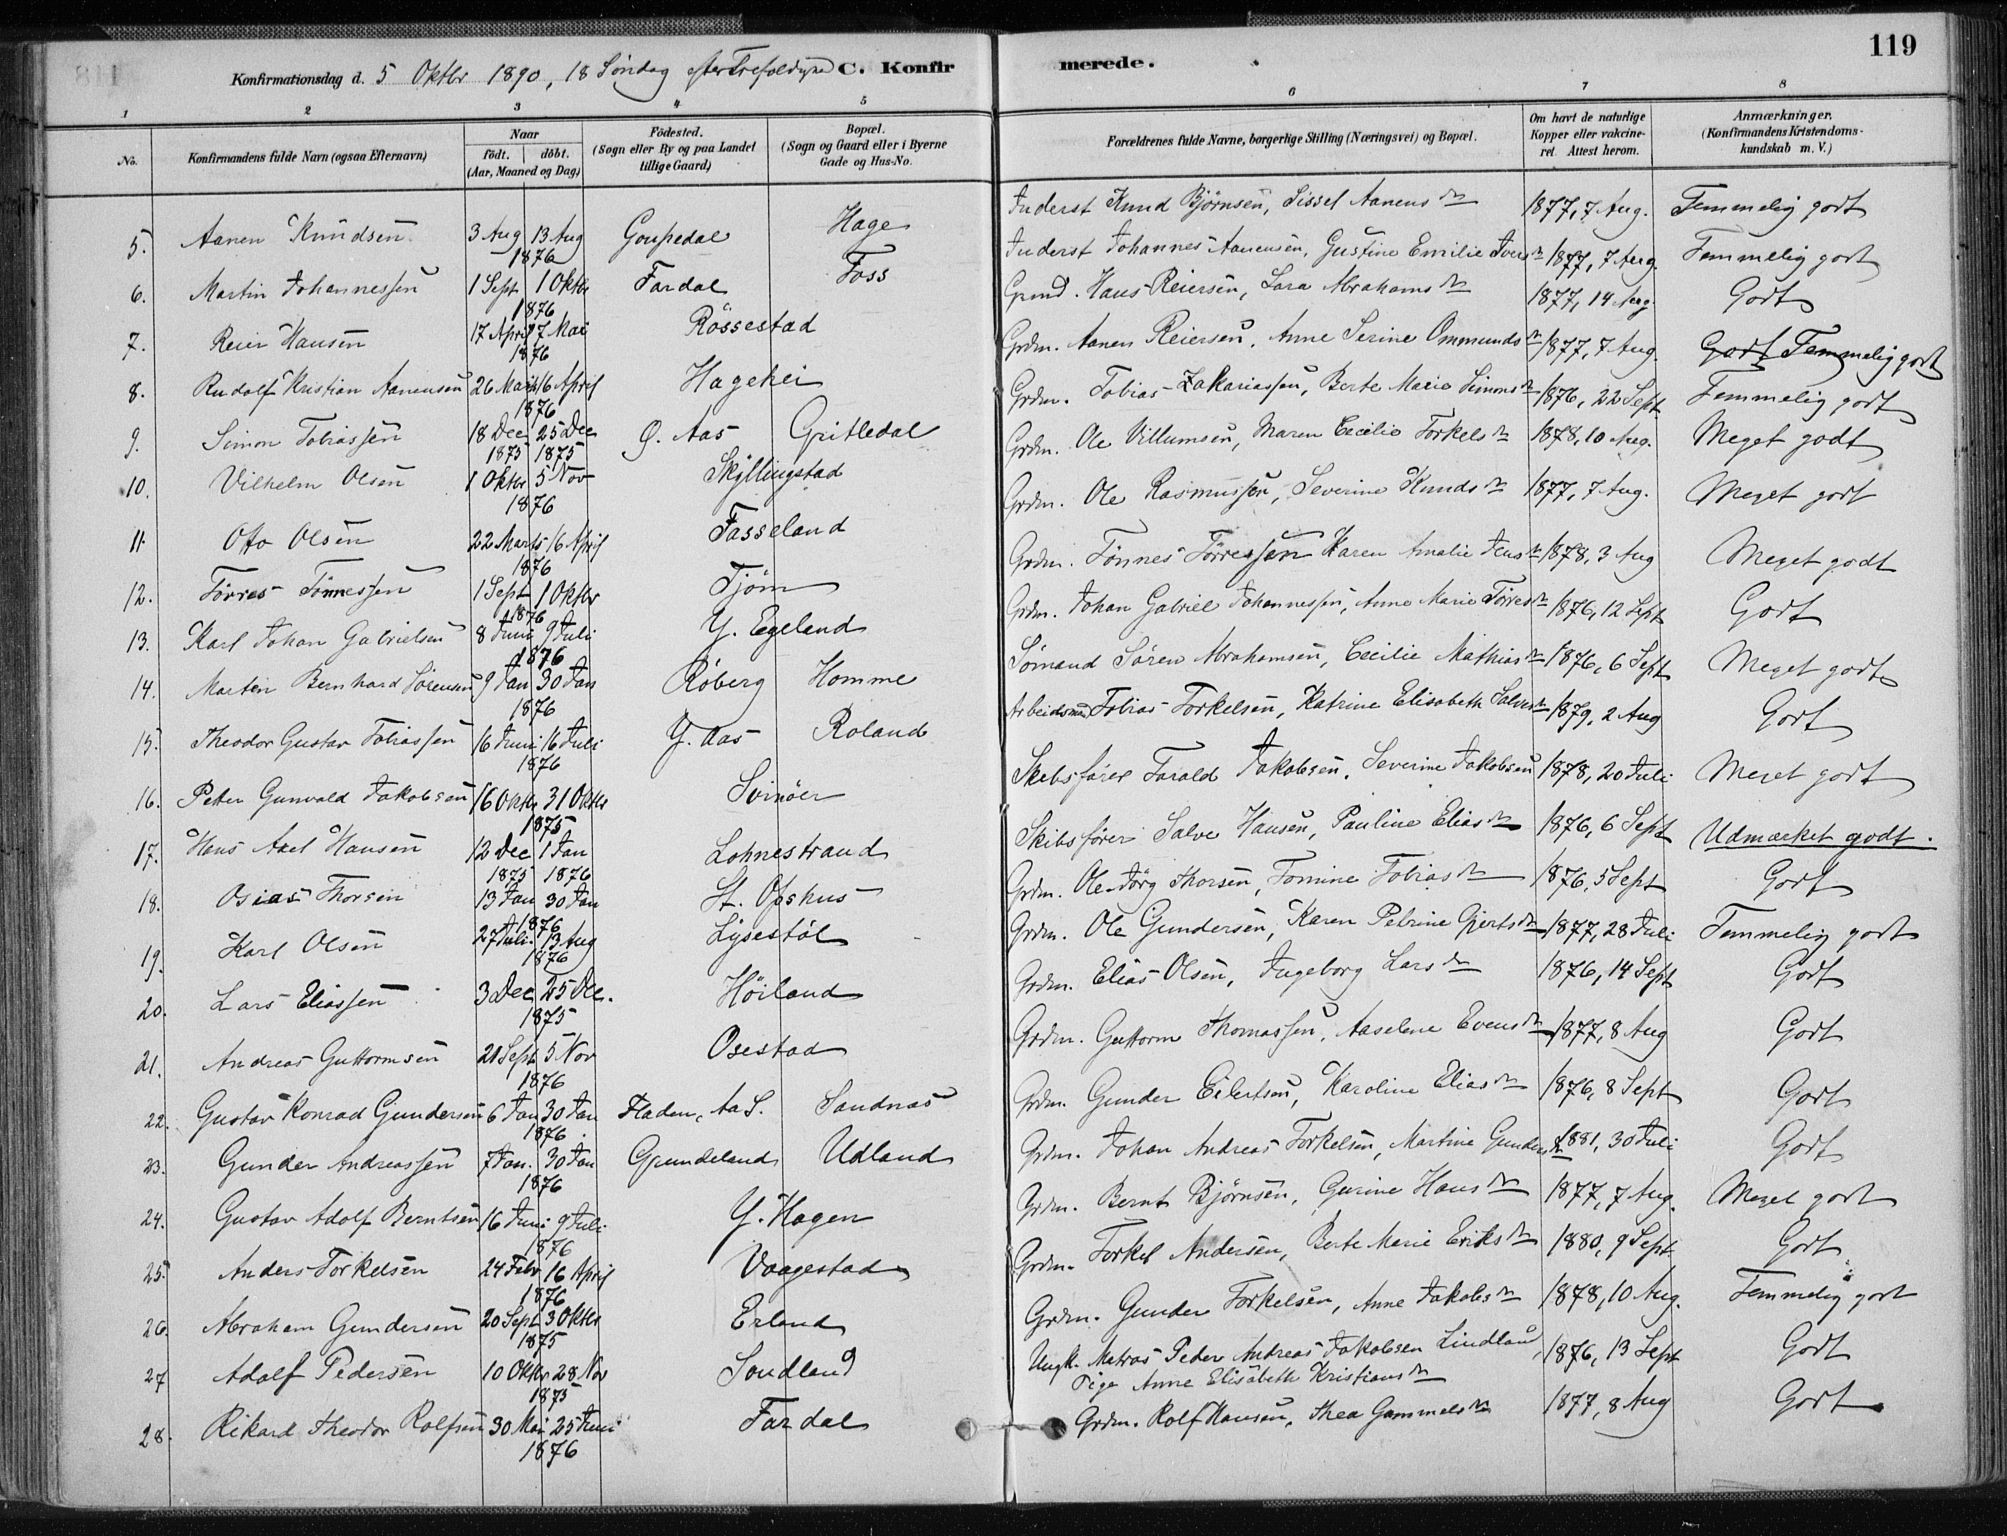 119
Konfirmationsdag d. 5 Oktbr 1890, 18 Søndag efter Trefoldighed C. Konfirmerede.
1 2 3 4 5 6 7 8
No. Konfirmandens fulde Navn (ogsaa Efternavn) Naar født. døbt. (Aar, Maaned og Dag) Fødested. (Sogn eller By og paa Landet tillige Gaard) Bopæl. (Sogn og Gaard eller i Byerne Gade og Hus-No. Forældrenes fulde Navne, borgerlige Stilling (Næringsvei) og Bopæl. Om havt de naturlige Kopper eller vakcineret. Attest herom. Anmærkninger. (Konfirmandens Kristendomskundskab m. V.)
5. Aanen Knudsen 3 Aug 13 Aug 1876 Goupedal Hage Inderst Knud Bjørnsen, Sissel Aanens dn 1877, 7 Aug. Temmelig godt
6. Martin Johannessen 1 Sept 1 Oktbr 1876 Fardal Foss Inderst Johannes Aanensen, Gustine Emilie Ivers dn 1877, 7 Aug. Temmelig godt
7. Reier Hansen 17 April 7 Mai 1876 Røssestad Grmd. Hans Reiersen, Sara Abrahams dn 1877, 14 Aug Godt
8. Rudolf Kristian Aanensen 26 Marts 16 April 1876 Hagehei Grdm. Aanen Reiersen, Anne Serine Ommunds dn 1877, 7 Aug. Godt Temmelig godt
9. Simon Tobiassen 18 Dec 1875 25 Dec 1875 Ø. Aas Gritledal Grdm. Tobias Zakariassen, Berte Marie Simons dn 1876, 22 Sept Temmelig godt
10. Vilhelm Olsen 1 Oktbr 5 Nov 1876 Skyllingstad Grdm. Ole Villumsen, Maren Cecilie Torkels dn 1878, 10 Aug. Meget godt
11. Otto Olsen 22 Marts 16 April 1876 Fasseland Grdm. Ole Rasmussen, Severine Knuds dn 1877, 7 Aug. Meget godt
12. Tørres Tønnessen 1 Sept 1 Oktbr 1876 Tjøm Grdm. Tønnes Tørressen Karen Amalie Jens dn 1878, 3 Aug Meget godt
13. Karl Johan Gabrielsen 8 Juni 9 Juli 1876 Y. Egeland Grdm. Johan Gabriel Johannessen, Anne Marie Tørres dn 1876, 12 Sept Godt
14. Martin Bernhard Sørensen 9 Jan 30 Jan 1876 Røberg Homme Sømand Søren Abrahamsen, Cecilie Mathias dn 1876, 6 Sept Meget godt
15. Theodor Gustav Tobiassen 16 Juni 16 Juli 1876 Y. Aas Roland Arbeidsmd Tobias Torkelsen, Katrine Elisabeth Salves dn 1879, 2 Aug Godt
16. Peter Gunvald Jakobsen 16 Oktbr 31 Oktbr 1875 Svinøer Skibsfører Tarald Jakobsen, Severine Jakobsen 1878, 20 Juli Meget godt
17. Hans Axel Hansen 12 Dec 1875 1 Jan 1876 Lohnestrand Skibsfører Salve Hansen, Pauline Elias dn 1876, 6 Sept Udmærket godt.
18. Osias Thorsen 13 Jan 30 Jan 1876 St. Ofshus Grdm. Ole Jørg Thorsen, Tomine Tobias dn 1876, 5 Sept Godt
19. Karl Olsen 27 Juli 13 Aug 1876 Lysestøl Grdm. Ole Gundersen, Karen Petrine Gjerts dn 1877, 28 Juli Temmelig godt
20. Lars Eliassen 3 Dec 25 Dec. 1875 Høiland Grdm. Elias Olsen, Ingeborg Lars dn 1876, 14 Sept Godt
21. Andreas Guttormsen 21 Sept 5 Nov 1876 Osestad Grdm. Guttorm Thomassen, Aaselene Evens dn 1877, 8 Aug Godt
22. Gustav Konrad Gundersen 6 Jan 30 Jan 1876 Fladen, Aa S. Sandnæs Grdm. Gunder Eilertsen, Karoline Elias dn 1876, 8 Sept Godt
23. Gunder Andreassen 7 Jan. 30 Jan 1876 Grundeland Udland Grdm. Johan Andreas Torkelsen, Martine Gunders dn 1881, 30 Juli Godt
24. Gustav Adolf Berntsen 16 Juni 9 Juli 1876 Y. Hagen Grdm. Bernt Bjørnsen, Gurine Hans dn 1877, 7 Aug. Meget godt
25. Anders Torkelsen 24 Febr 16 April 1876 Vaagestad Grdm. Torkel Andersen, Berte Marie Eriks dn 1880, 9 Sept Godt
26. Abraham Gundersen 20 Sept 3 Oktbr 1875 Erland Grdm. Gunder Torkelsen, Anne Jakobs dn 1878, 10 Aug. Temmelig godt
27 Adolf Pedersen 10 Oktbr 28 Nov 1875 Sondland Ungk. Matros Peder Andreas Jakobsen Lindland, Pige Anne Elisabeth Kristians dn 1876, 13 Sept Godt
28. Rikard Theodor Rolfsen 30 Mai 25 Juni 1876 Fardal Grdm. Rolf Hansen, Thea Gammels dn 1877, 8 Aug Godt